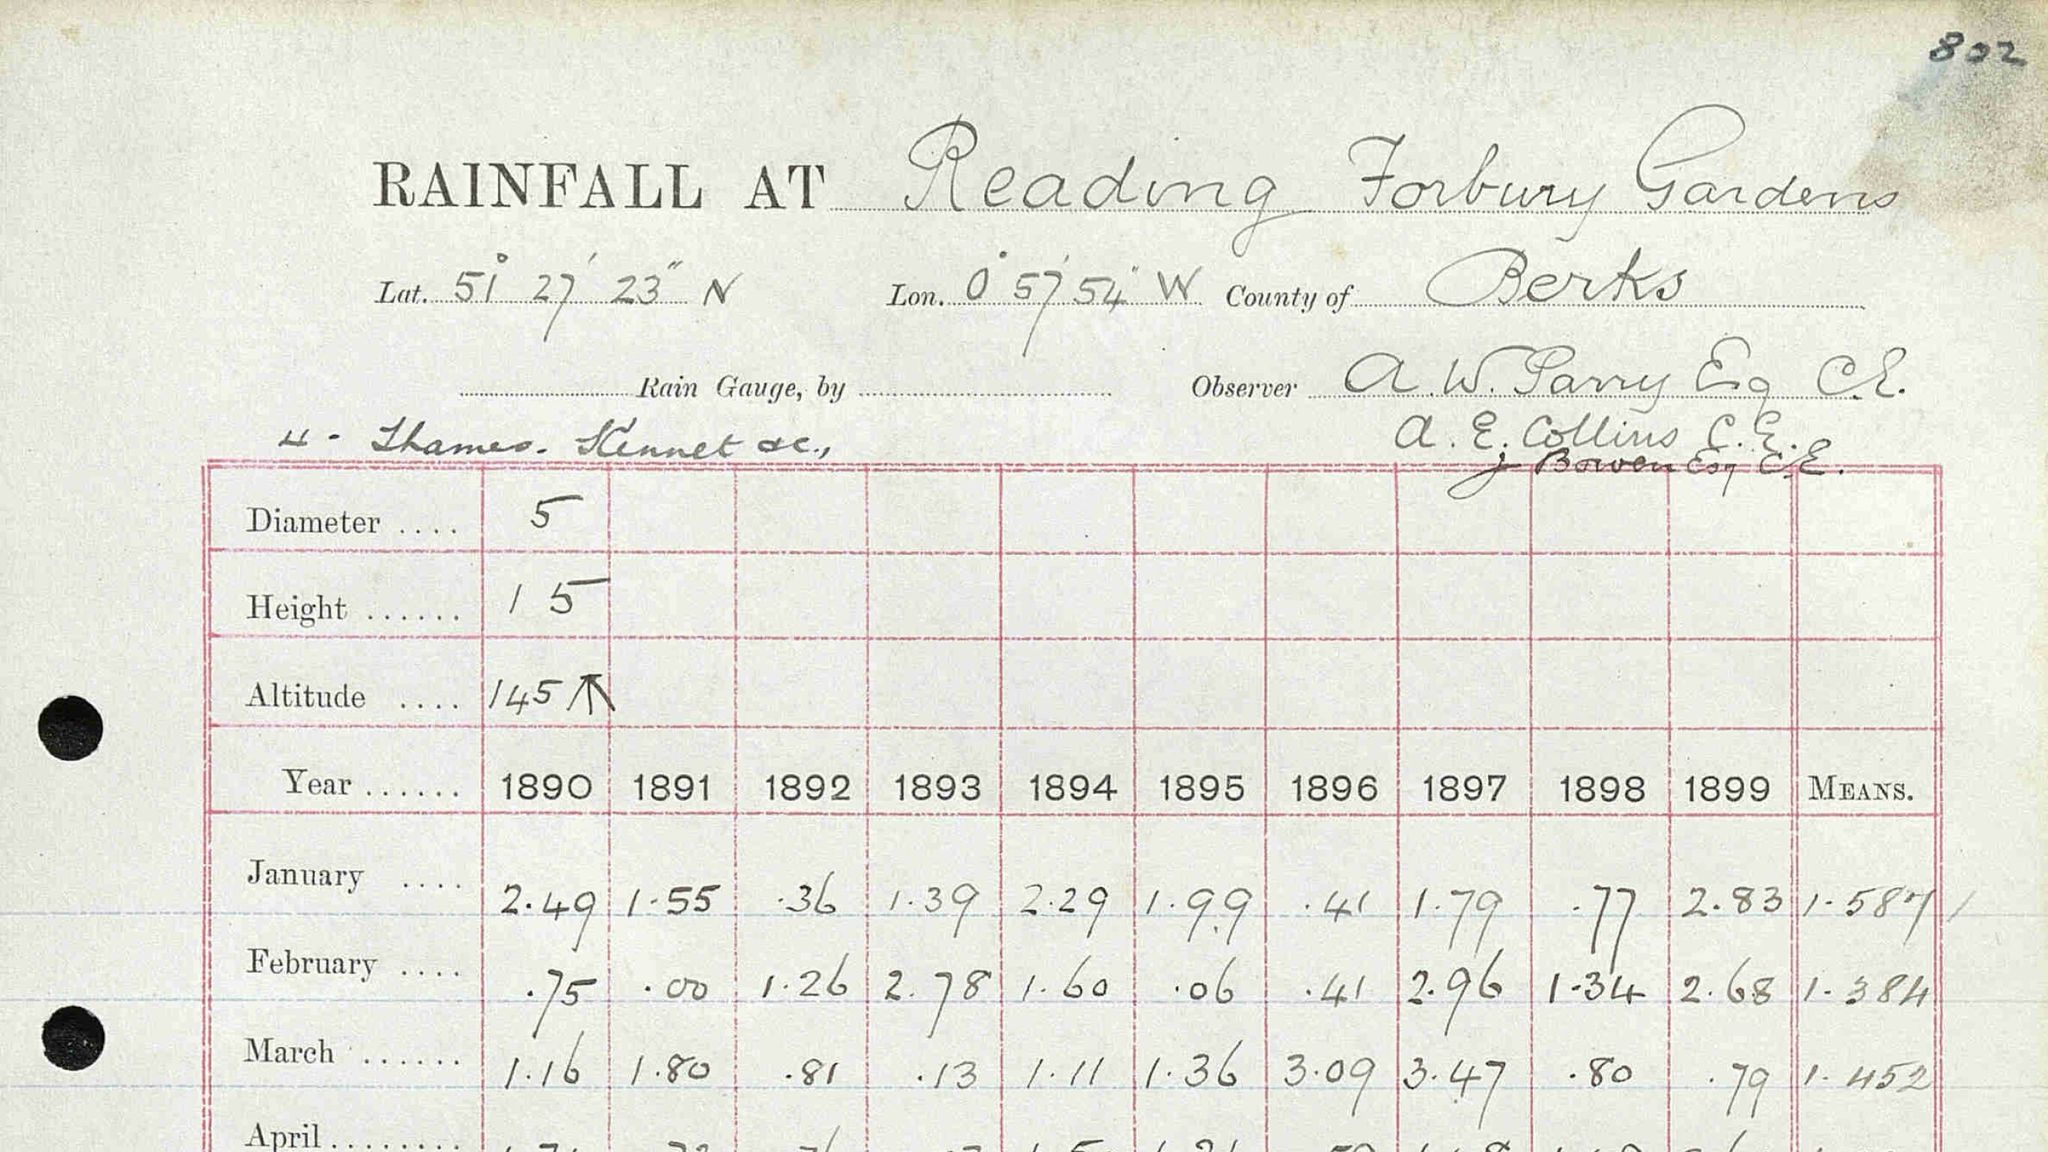 802
RAINFALL AT Reading Forbury Gardens
Lat. 51° 27' 23" N Lon. 0° 57' 54" W County of Berks
Rain Gauge, by Observer A. W. Parry Esq C.E.
4 - Thames. Kennet &c., A. E. Collins C.E.
J Bowen Esq C.E.
Diameter .... 5
Height ...... 1 5
Altitude .... 145
Year ...... 1890 1891 1892 1893 1894 1895 1896 1897 1898 1899 MEANS.
January .... 2.49 1.55 .36 1.39 2.29 1.99 .41 1.79 .77 2.83 1.587
February .... .75 .00 1.26 2.78 1.60 .06 .41 2.96 1.34 2.68 1.384
March ...... 1.16 1.80 .81 .13 1.11 1.36 3.09 3.47 .80 .79 1.452
April ........